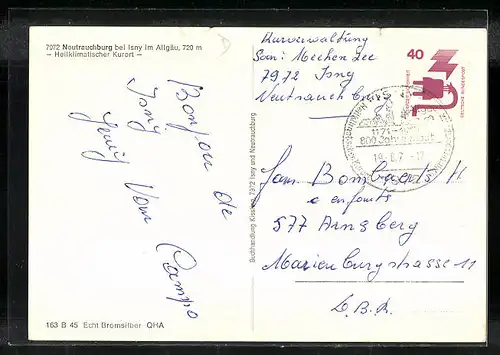 7972 Neutrauchburg bei Isny im Allgäu, 720 m
– Heilklimatischer Kurort –
Bonjour de
Isny
Jenij Vom Campo
163 B 45 Echt Bromsilber QHA
Buchhandlung Kissling, 7972 Isny und Neutrauchburg
Kurverwaltung
7972 Isny
Neutrauchburg
40
DEUTSCHE BUNDESPOST
1171
800 Jahre
Fam Bombaerts H
e enfants
577 Arnsberg
Marienburgstrasse 11
D.B.R.